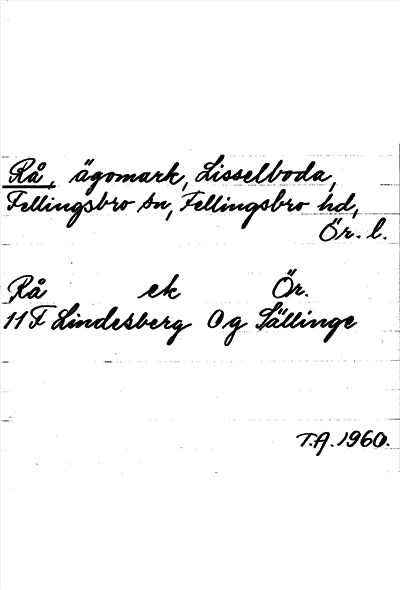 Rå, ägomark, Lisselboda,
Fellingsbro sn, Fellingsbro hd,
Ör. l.
Rå ek Ör.
11 F Lindesberg 0 g Sällinge
T.A. 1960.